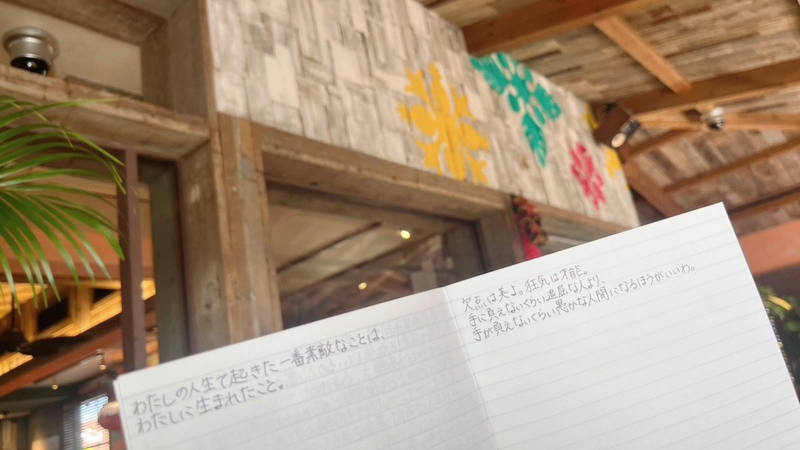 わたしの人生で起きた一番素敵なことは、
わたしに生まれたこと。
欠点は美よ。狂気は才能。
手に負えないくらい退屈な人より、
手が負えないくらい愚かな人間になるほうがいいわ。